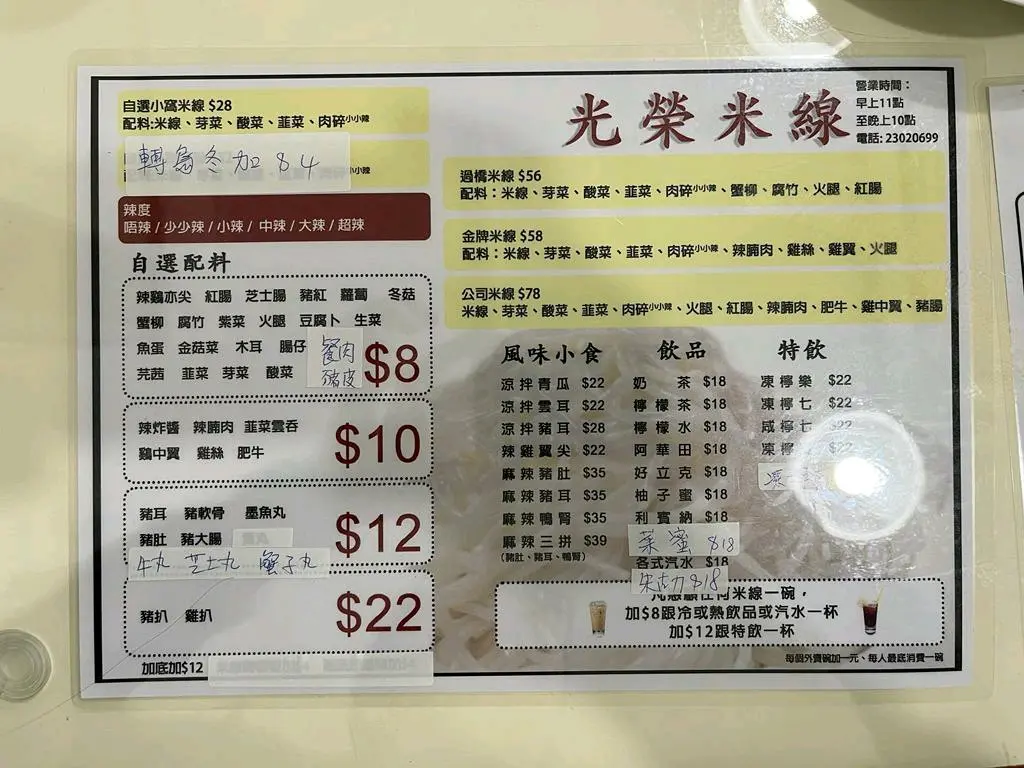 光榮米線
營業時間：
早上11點
至晚上10點
電話: 23020699
自選小窩米線 $28
配料:米線、芽菜、酸菜、韮菜、肉碎小小辣
轉急冬加 $4
小辣
辣度
唔辣 / 少少辣 / 小辣 / 中辣 / 大辣 / 超辣
自選配料
辣鷄亦尖 紅腸 芝士腸 豬紅 蘿蔔 冬菇
蟹柳 腐竹 紫菜 火腿 豆腐卜 生菜
魚蛋 金菇菜 木耳 腸仔 餐肉
芫茜 韮菜 芽菜 酸菜 豬皮
$8
辣炸醬 辣腩肉 韮菜雲吞
鷄中翼 雞絲 肥牛
$10
豬耳 豬軟骨 墨魚丸
豬肚 豬大腸
牛丸 芝士丸 蟹子丸
$12
豬扒 雞扒
$22
加底加$12
過橋米線 $56
配料：米線、芽菜、酸菜、韮菜、肉碎小小辣、蟹柳、腐竹、火腿、紅腸
金牌米線 $58
配料：米線、芽菜、酸菜、韮菜、肉碎小小辣、辣腩肉、雞絲、雞翼、火腿
公司米線 $78
米線、芽菜、酸菜、韮菜、肉碎小小辣、火腿、紅腸、辣腩肉、肥牛、雞中翼、豬腸
風味小食
涼拌青瓜 $22
涼拌雲耳 $22
涼拌豬耳 $28
辣雞翼尖 $22
麻辣豬肚 $35
麻辣豬耳 $35
麻辣鴨腎 $35
麻辣三拼 $39
(豬肚、豬耳、鴨腎)
飲品
奶茶 $18
檸檬茶 $18
檸檬水 $18
阿華田 $18
好立克 $18
柚子蜜 $18
利賓納 $18
菜蜜 $18
各式汽水 $18
朱古力 $18
特飲
凍檸樂 $22
凍檸七 $22
咸檸七 $22
凍檸 $22
凡惠顧任何米線一碗，
加$8跟冷或熱飲品或汽水一杯
加$12跟特飲一杯
每個外賣碗加一元、每人最底消費一碗